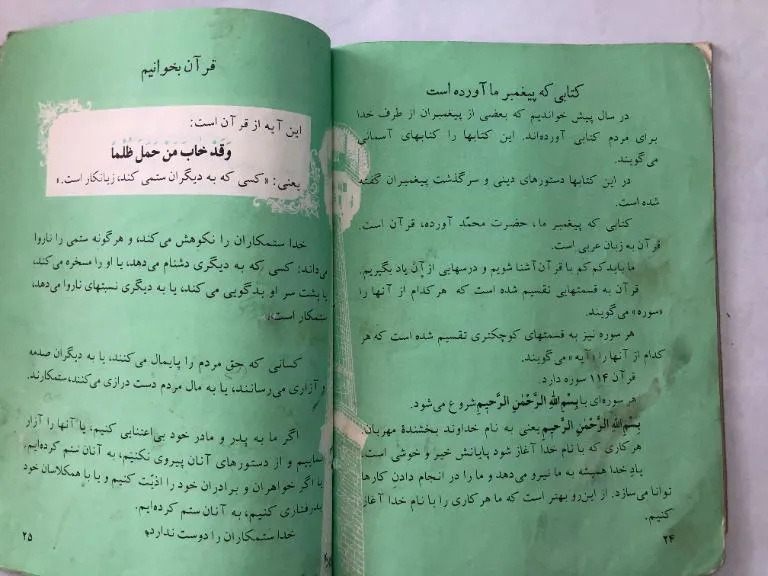 کتابی که پیغمبر ما آورده است
در سال پیش خواندیم که بعضی از پیغمبران از طرف خدا
برای مردم کتابی آورده‌اند. این کتابها را کتابهای آسمانی
می‌گویند.
در این کتابها دستورهای دینی و سرگذشت پیغمبران گفته
شده است.
کتابی که پیغمبر ما، حضرت محمّد آورده، قرآن است.
قرآن به زبان عربی است.
ما باید کم کم با قرآن آشنا شویم و درسهایی از آن یاد بگیریم.
قرآن به قسمتهایی تقسیم شده است که هر کدام از آنها را
«سوره» می‌گویند.
هر سوره نیز به قسمتهای کوچکتری تقسیم شده است که هر
کدام از آنها را «آیه» می‌گویند.
قرآن ۱۱۴ سوره دارد.
هر سوره‌ای با بِسْمِ اللهِ الرَّحْمٰنِ الرَّحیمِ شروع می‌شود.
بِسْمِ اللهِ الرَّحْمٰنِ الرَّحیمِ یعنی به نام خداوند بخشندهٔ مهربان.
هر کاری که با نام خدا آغاز شود پایانش خیر و خوشی است.
یاد خدا همیشه به ما نیرو می‌دهد و ما را در انجام دادن کارها
توانا می‌سازد. از این‌رو بهتر است که ما هر کاری را با نام خدا آغاز
کنیم.
۲۴
قرآن بخوانیم
این آیه از قرآن است:
وَقَدْ خابَ مَنْ حَمَلَ ظُلْماً
یعنی: «کسی که به دیگران ستمی کند، زیانکار است.»
خدا ستمکاران را نکوهش می‌کند، و هرگونه ستمی را ناروا
می‌داند: کسی که به دیگری دشنام می‌دهد، یا او را مسخره می‌کند،
یا پشت سر او بدگویی می‌کند، یا به دیگری نسبتهای ناروا می‌دهد،
ستمکار است.
کسانی که حق مردم را پایمال می‌کنند، یا به دیگران صدمه
و آزاری می‌رسانند، یا به مال مردم دست درازی می‌کنند، ستمکارند.
اگر ما به پدر و مادر خود بی‌اعتنایی کنیم، یا آنها را آزار
نماییم و از دستورهای آنان پیروی نکنیم، به آنان ستم کرده‌ایم.
یا اگر خواهران و برادران خود را اذیّت کنیم و یا با همکلاسان خود
بدرفتاری کنیم، به آنان ستم کرده‌ایم.
خدا ستمکاران را دوست ندارد
۲۵